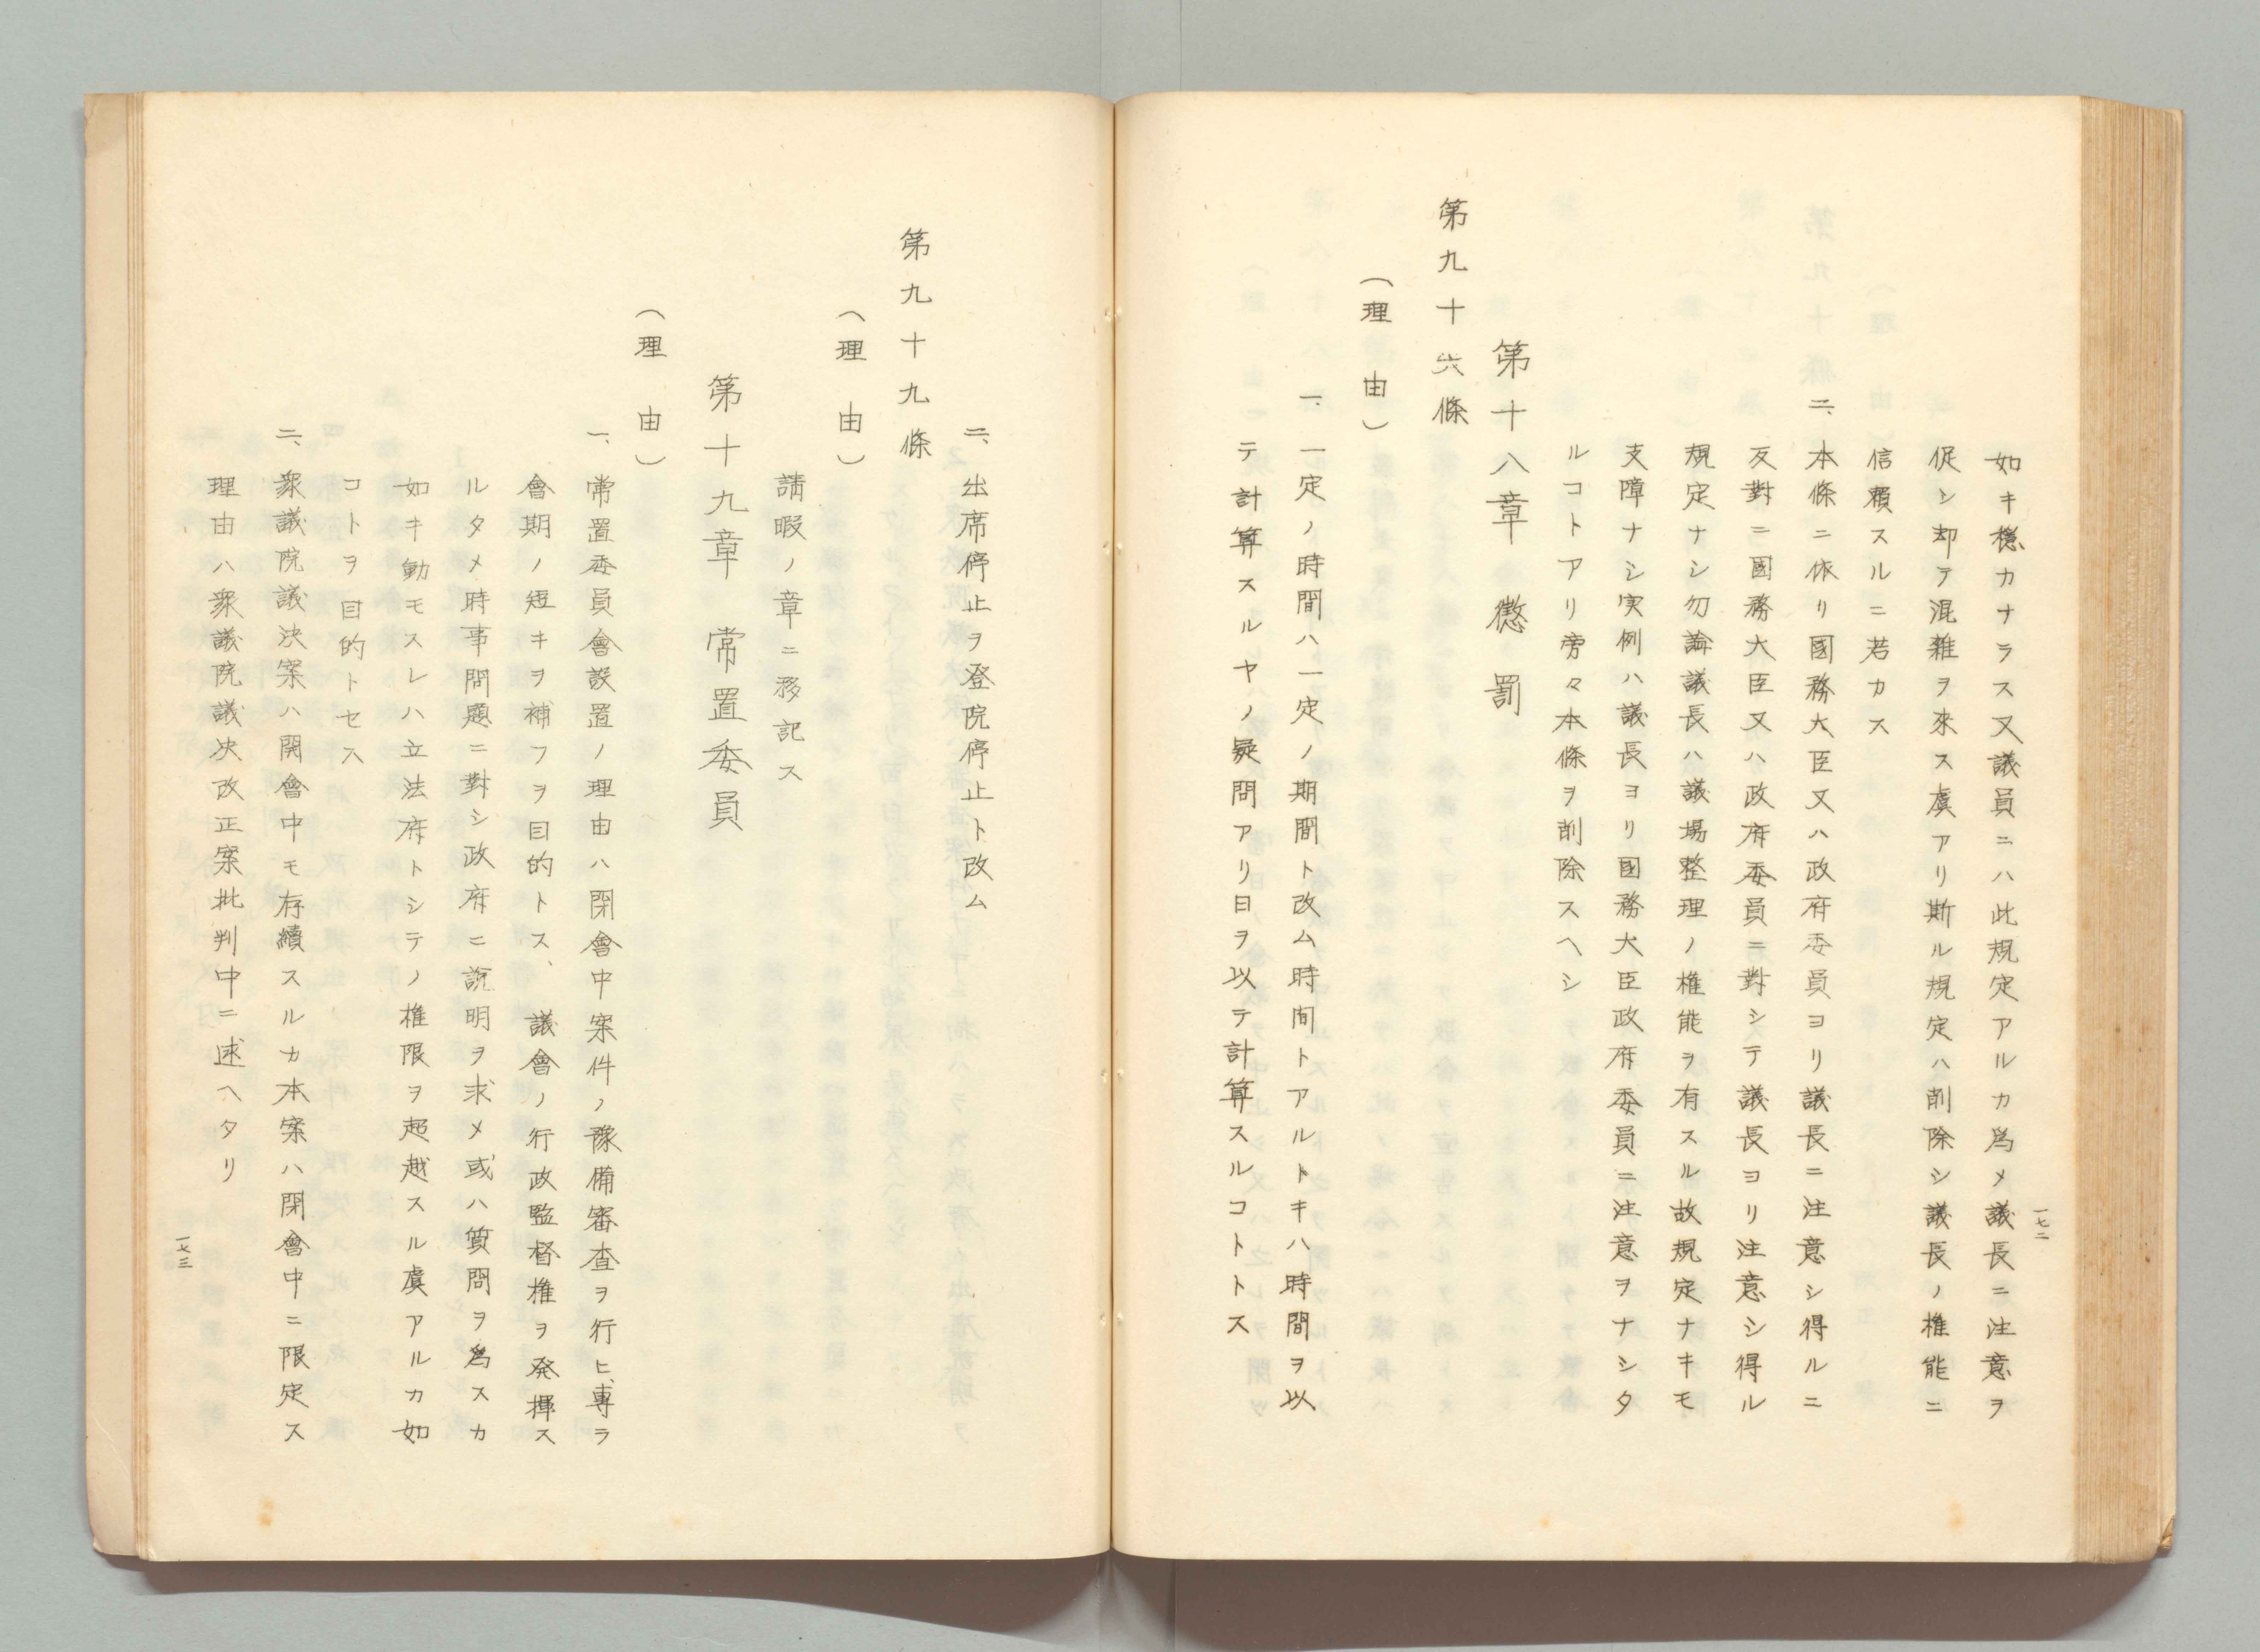 一七二
如キ穏カナラス又議員ニハ此規定アルカ爲メ議長ニ注意ヲ
促シ却テ混雑ヲ來ス虞アリ斯ル規定ハ削除シ議長ノ権能ニ
信頼スルニ若カス
二、本條ニ依リ國務大臣又ハ政府委員ヨリ議長ニ注意シ得ルニ
反對ニ國務大臣又ハ政府委員ニ對シテ議長ヨリ注意シ得ル
規定ナシ勿論議長ハ議場整理ノ権能ヲ有スル故規定ナキモ
支障ナシ実例ハ議長ヨリ國務大臣政府委員ニ注意ヲナシタ
ルコトアリ旁々本條ヲ削除スヘシ
第十八章 懲罰
第九十六條
（理由）
一、一定ノ時間ハ一定ノ期間ト改ム時间トアルトキハ時間ヲ以
テ計算スルヤノ疑問アリ日ヲ以テ計算スルコトトス
二、出席停止ヲ登院停止ト改ム
第九十九條
（理由）
請暇ノ章ニ移記ス
第十九章 常置委員
（理由）
一、常置委員會設置ノ理由ハ閉會中案件ノ豫備審査ヲ行ヒ、專ラ
會期ノ短キヲ補フヲ目的トス、議會ノ行政監督権ヲ発揮ス
ルタメ時事問題ニ對シ政府ニ説明ヲ求メ或ハ質問ヲ爲スカ
如キ動モスレハ立法府トシテノ権限ヲ超越スル虞アルカ如
コトヲ目的トセス
二、衆議院議決案ハ開會中モ存續スルカ本案ハ閉會中ニ限定ス
理由ハ衆議院議決改正案批判中ニ述ヘタリ
一七三